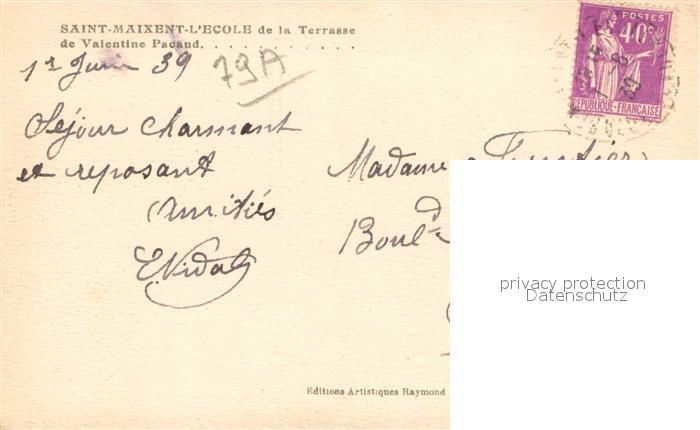 SAINT-MAIXENT-L'ECOLE de la Terrasse
de Valentine Pacaud. . . . . . . . . . . .
1er Juin 39
79A
POSTES
40c
REPUBLIQUE-FRANÇAISE
Séjour charmant
et reposant
Amitiés
E Vidal
Madame
Boul d
privacy protection
Datenschutz
Editions Artistiques Raymond